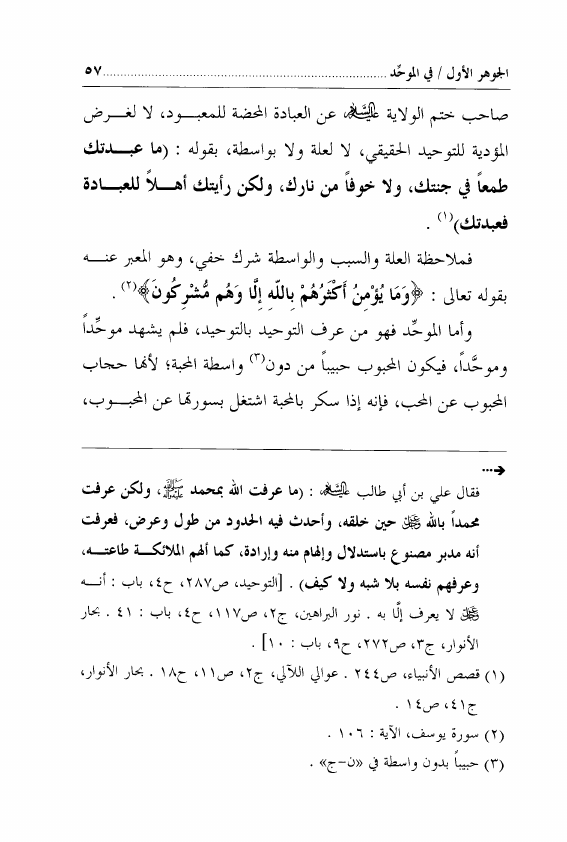 الجوهر الأول / في الموحِّد ........................................................................ ٥٧
صاحب ختم الولاية عليه السلام عن العبادة المحضة للمعبـود، لا لغـرض
المؤدية للتوحيد الحقيقي، لا لعلة ولا بواسطة، بقوله : (ما عبـدتك
طمعاً في جنتك، ولا خوفاً من نارك، ولكن رأيتك أهـلاً للعبـادة
فعبدتك)(١) .
فملاحظة العلة والسبب والواسطة شرك خفي، وهو المعبر عنـه
بقوله تعالى : ﴿وَمَا يُؤْمِنُ أَكْثَرُهُمْ بِاللَّهِ إِلَّا وَهُم مُّشْرِكُونَ﴾(٢) .
وأما الموحِّد فهو من عرف التوحيد بالتوحيد، فلم يشهد موحِّداً
وموحَّداً، فيكون المحبوب حبيباً من دون(٣) واسطة المحبة؛ لأنها حجاب
المحبوب عن المحب، فإنه إذا سكر بالمحبة اشتغل بسورتها عن المحبـوب،
➔...
فقال علي بن أبي طالب عليه السلام : (ما عرفت الله بمحمد ﷺ، ولكن عرفت
محمداً بالله ﷻ حين خلقه، وأحدث فيه الحدود من طول وعرض، فعرفت
أنه مدبر مصنوع باستدلال وإلهام منه وإرادة، كما ألهم الملائكـة طاعتـه،
وعرفهم نفسه بلا شبه ولا كيف) . [التوحيد، ص٢٨٧، ح٤، باب : أنـه
ﷻ لا يعرف إلَّا به . نور البراهين، ج٢، ص١١٧، ح٤، باب : ٤١ . بحار
الأنوار، ج٣، ص٢٧٢، ح٩، باب : ١٠] .
(١) قصص الأنبياء، ص٢٤٤ . عوالي اللآلي، ج٢، ص١١، ح١٨ . بحار الأنوار،
ج٤١، ص١٤ .
(٢) سورة يوسف، الآية : ١٠٦ .
(٣) حبيباً بدون واسطة في «ن-ج» .